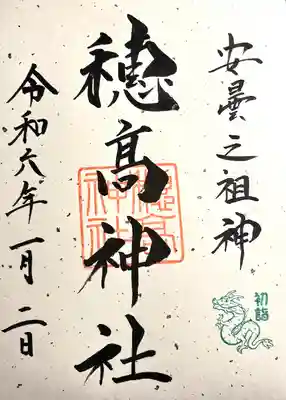 安曇之祖神
初詣
穂髙神社
穂髙神社
令和六年一月二日